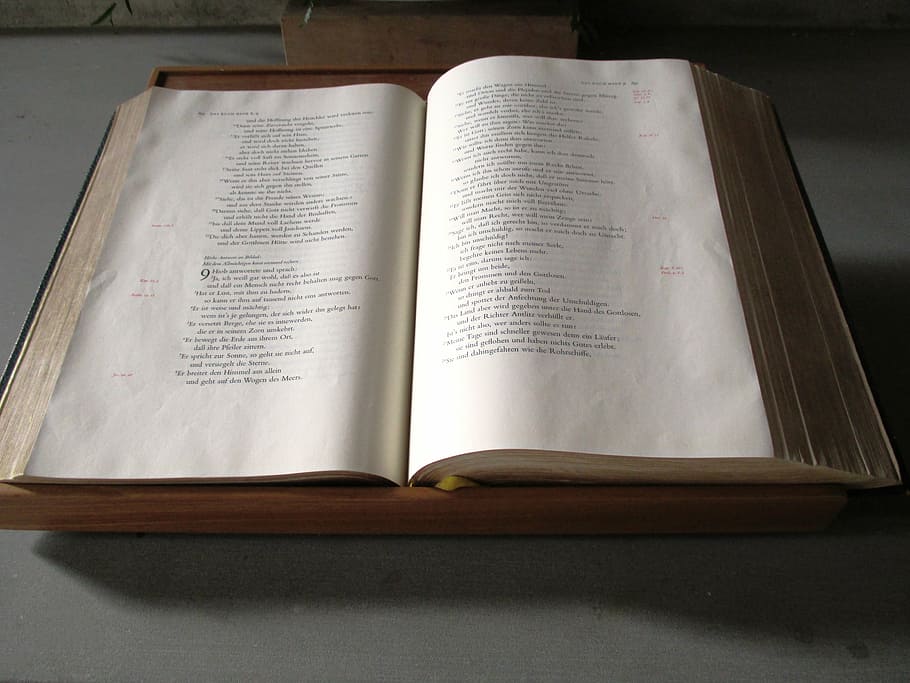 DAS BUCH HIOB 8. 9
und die Hoffnung des wird verloren sein.
Denn seine Zuversicht vergeht,
und seine Hoffnung ist eine Spinnwebe.
Er verläßt sich auf sein Haus,
und wird doch nicht bestehen;
er wird sich daran halten,
aber doch nicht stehen bleiben.
Er steht voll Saft im Sonnenschein,
und seine Reiser wachsen hervor in seinem Garten
Seine Saat steht dick bei den Quellen
und sein Haus auf Steinen.
Wenn er ihn aber verschlingt von seiner Stätte,
wird sie sich gegen ihn stellen,
als kennete sie ihn nicht.
Siehe, das ist die Freude seines Wesens;
und aus dem Staube werden andere wachsen.
Darum siehe, daß Gott nicht verwirft die Frommen
und erhält nicht die Hand der Boshaften,
bis daß dein Mund voll Lachens werde
und deine Lippen voll Jauchzens.
Die dich aber hassen, werden zu Schanden werden,
und der Gottlosen Hütte wird nicht bestehen.
Hiobs Antwort an Bildad:
Mit dem Allmächtigen kann niemand rechten.
9 Hiob antwortete und sprach:
Ja, ich weiß gar wohl, daß es also ist
und daß ein Mensch nicht recht behalten mag gegen Gott.
Hat er Lust, mit ihm zu hadern,
so kann er ihm auf tausend nicht eins antworten.
Er ist weise und mächtig;
wem ist's je gelungen, der sich wider ihn gelegt hat?
Er versetzt Berge, ehe sie es innewerden,
die er in seinem Zorn umkehrt.
Er bewegt die Erde aus ihrem Ort,
daß ihre Pfeiler zittern.
Er spricht zur Sonne, so geht sie nicht auf,
und versiegelt die Sterne.
Er breitet den Himmel aus allein
und geht auf den Wogen des Meers.
DAS BUCH HIOB 9
Er macht den Wagen am Himmel
und Orion und die Plejaden und die Sterne gegen Mittag.
Er tut große Dinge, die nicht zu erforschen sind,
und Wunder, deren keine Zahl ist.
Siehe, er geht an mir vorüber, ehe ich's gewahr werde,
und wandelt vorbei, ehe ich's merke.
Siehe, wenn er hinreißt, wer will ihm wehren?
Wer will zu ihm sagen: Was machst du?
Er ist Gott; seinen Zorn kann niemand stillen;
unter ihn mußten sich beugen die Helfer Rahabs.
Wie sollte ich denn ihm antworten
und Worte finden gegen ihn?
Wenn ich auch recht habe, kann ich ihm dennoch
nicht antworten,
sondern ich müßte um mein Recht flehen.
Wenn ich ihn schon anrufe und er mir antwortet,
so glaube ich doch nicht, daß er meine Stimme höre.
Denn er fährt über mich mit Ungestüm
und macht mir der Wunden viel ohne Ursache.
Er läßt meinen Geist sich nicht erquicken,
sondern macht mich voll Betrübnis.
Will man Macht, so ist er zu mächtig;
will man Recht, wer will mein Zeuge sein?
Sage ich, daß ich gerecht bin, so verdammt er mich doch;
bin ich unschuldig, so macht er mich doch zu Unrecht.
Ich bin unschuldig!
ich frage nicht nach meiner Seele,
begehre keines Lebens mehr.
Es ist eins, darum sage ich:
Er bringt um beide,
den Frommen und den Gottlosen.
Wenn er anhebt zu geißeln,
so dringt er alsbald zum Tod
und spottet der Anfechtung der Unschuldigen.
Das Land aber wird gegeben unter die Hand des Gottlosen,
und der Richter Antlitz verhüllt er.
Ist's nicht also, wer anders sollte es tun?
Meine Tage sind schneller gewesen denn ein Läufer;
sie sind geflohen und haben nichts Gutes erlebt.
Sie sind dahingefahren wie die Rohrschiffe,